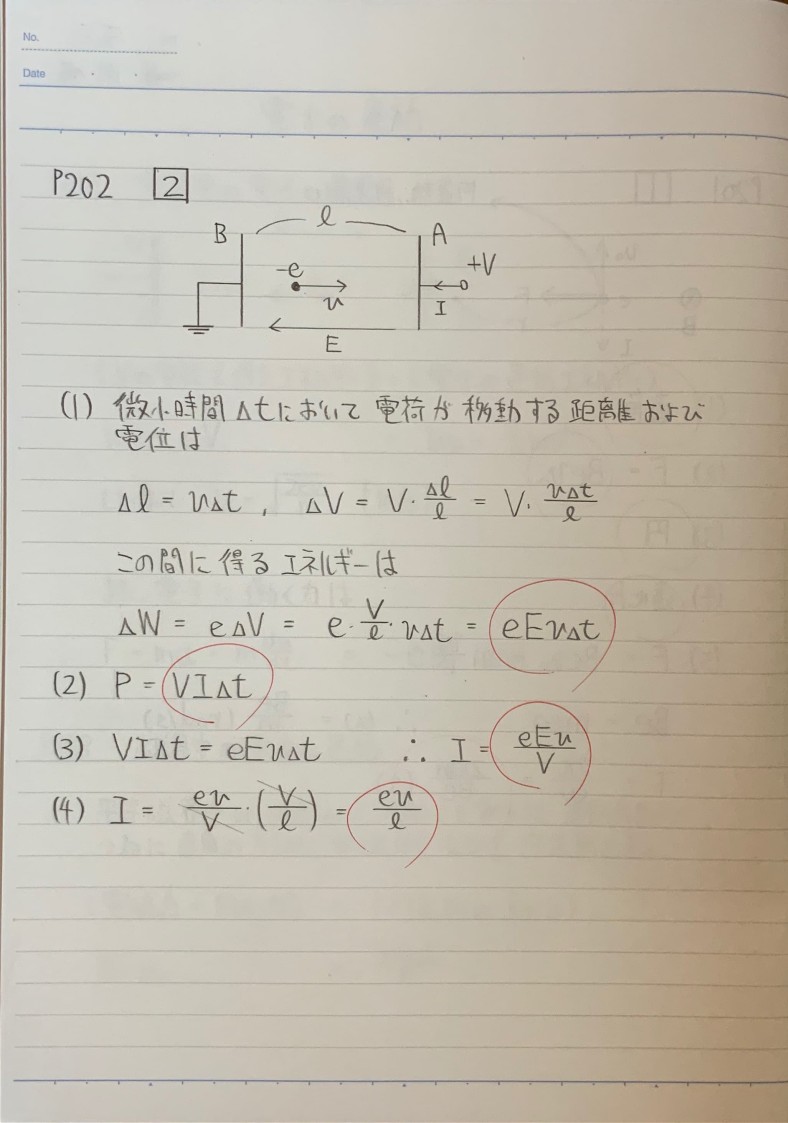 No.
Date
P202 2
l
B A
-e +V
u I
E
(1) 微小時間 Δtにおいて 電荷が 移動する 距離 および
電位は
Δl = uΔt , ΔV = V・Δl/l = V・uΔt/l
この間に得るエネルギーは
ΔW = eΔV = e・V/l・uΔt = eEuΔt
(2) P = VIΔt
(3) VIΔt = eEuΔt ∴ I = eEu/V
(4) I = eu/V・(V/l) = eu/l